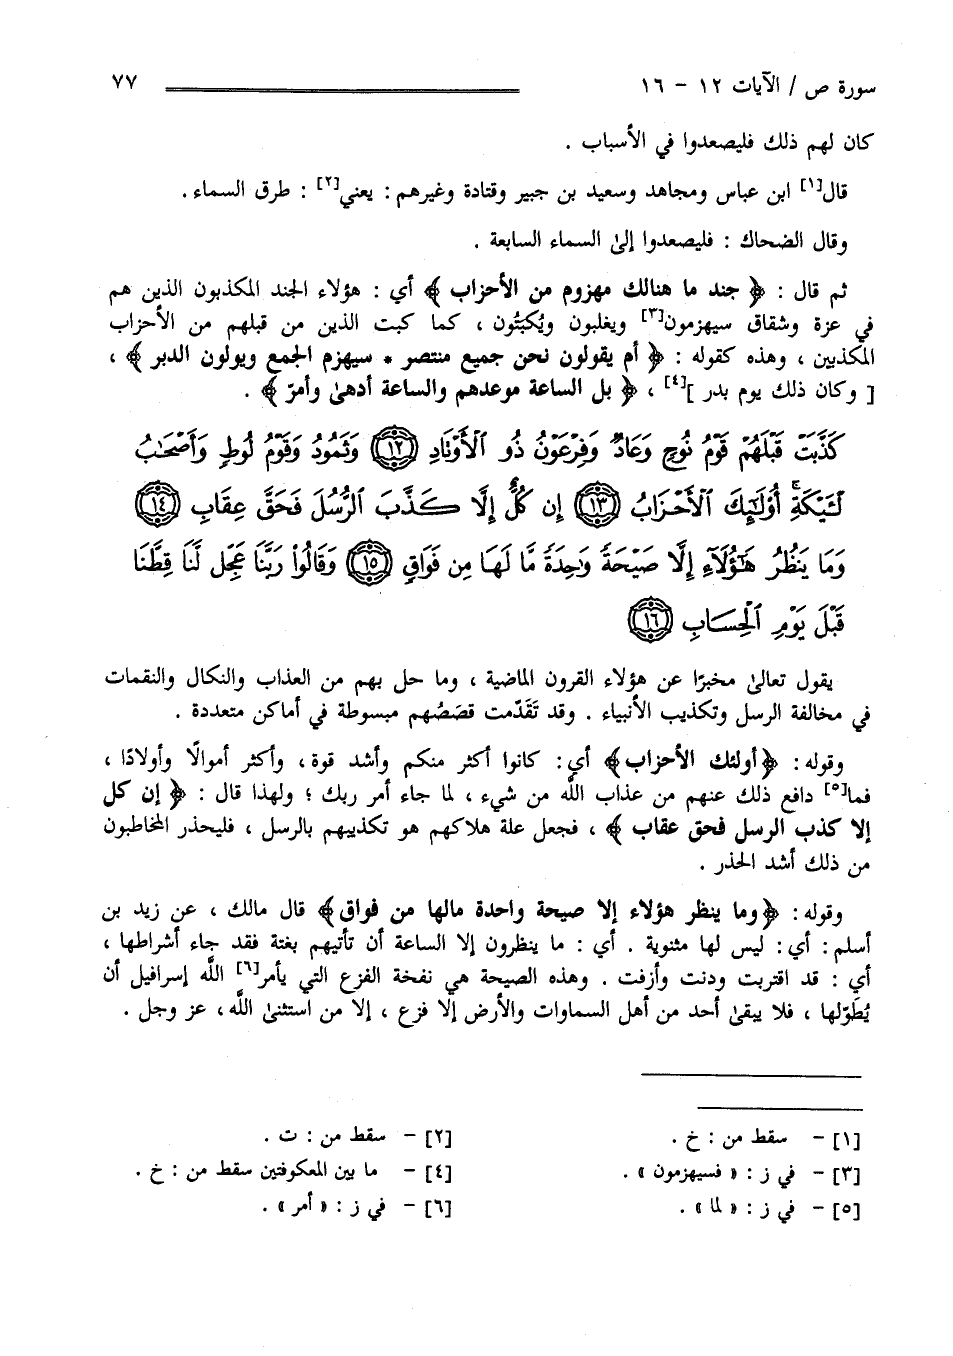 سورة ص / الآيات ١٢ - ١٦ ٧٧
كان لهم ذلك فليصعدوا في الأسباب .
قال[١] ابن عباس ومجاهد وسعيد بن جبير وقتادة وغيرهم : يعني[٢] : طرق السماء .
وقال الضحاك : فليصعدوا إلىٰ السماء السابعة .
ثم قال : ﴿ جند ما هنالك مهزوم من الأحزاب ﴾ أي : هؤلاء الجند المكذبون الذين هم
في عزة وشقاق سيهزمون[٣] ويغلبون ويُكبتُون ، كما كبت الذين من قبلهم من الأحزاب
المكذبين ، وهذه كقوله : ﴿ أم يقولون نحن جميع منتصر * سيهزم الجمع ويولون الدبر ﴾ ،
[ وكان ذلك يوم بدر ][٤] ، ﴿ بل الساعة موعدهم والساعة أدهىٰ وأمرّ ﴾ .
كَذَّبَتْ قَبْلَهُمْ قَوْمُ نُوحٍ وَعَادٌ وَفِرْعَوْنُ ذُو ٱلْأَوْتَادِ ١٢ وَثَمُودُ وَقَوْمُ لُوطٍ وَأَصْحَٰبُ
لْـَٔيْكَةِ ۚ أُو۟لَٰٓئِكَ ٱلْأَحْزَابُ ١٣ إِن كُلٌّ إِلَّا كَذَّبَ ٱلرُّسُلَ فَحَقَّ عِقَابِ ١٤
وَمَا يَنظُرُ هَٰٓؤُلَآءِ إِلَّا صَيْحَةً وَٰحِدَةً مَّا لَهَا مِن فَوَاقٍ ١٥ وَقَالُوا۟ رَبَّنَا عَجِّل لَّنَا قِطَّنَا
قَبْلَ يَوْمِ ٱلْحِسَابِ ١٦
يقول تعالىٰ مخبرًا عن هؤلاء القرون الماضية ، وما حل بهم من العذاب والنكال والنقمات
في مخالفة الرسل وتكذيب الأنبياء . وقد تَقَدّمت قصَصُهم مبسوطة في أماكن متعددة .
وقوله : ﴿أولئك الأحزاب﴾ أي : كانوا أكثر منكم وأشد قوة ، وأكثر أموالًا وأولادًا ،
فما[٥] دافع ذلك عنهم من عذاب اللَّه من شيء ، لما جاء أمر ربك ؛ ولهذا قال : ﴿ إن كل
إلا كذب الرسل فحق عقاب ﴾ ، فجعل علة هلاكهم هو تكذيبهم بالرسل ، فليحذر المخاطبون
من ذلك أشد الحذر .
وقوله : ﴿وما ينظر هؤلاء إلا صيحة واحدة مالها من فواق﴾ قال مالك ، عن زيد بن
أسلم : أي : ليس لها مثنوية . أي : ما ينظرون إلا الساعة أن تأتيهم بغتة فقد جاء أشراطها ،
أي : قد اقتربت ودنت وأزفت . وهذه الصيحة هي نفخة الفزع التي يأمر[٦] اللَّه إسرافيل أن
يُطَوّلها ، فلا يبقىٰ أحد من أهل السماوات والأرض إلا فزع ، إلا من استثنىٰ اللَّه ، عز وجل .
[١] - سقط من : خ . [٢] - سقط من : ت .
[٣] - في ز : « فسيهزمون » . [٤] - ما بين المعكوفتين سقط من : خ .
[٥] - في ز : « لما » . [٦] - في ز : « أمر » .